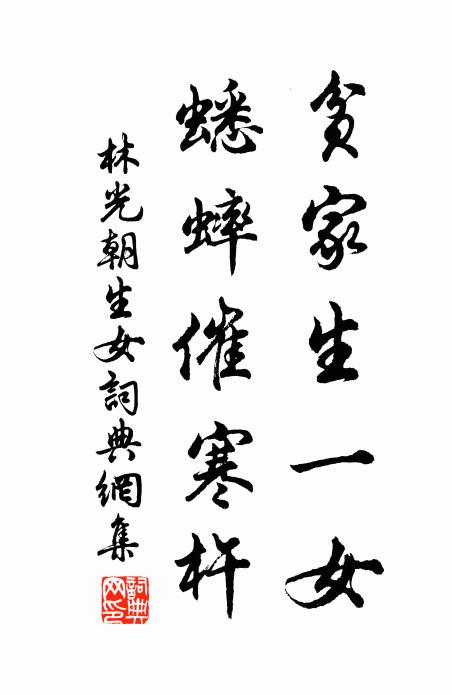 貧家生一女
蟋蟀催寒杵
林光朝生女詞典網集
詞典
网印